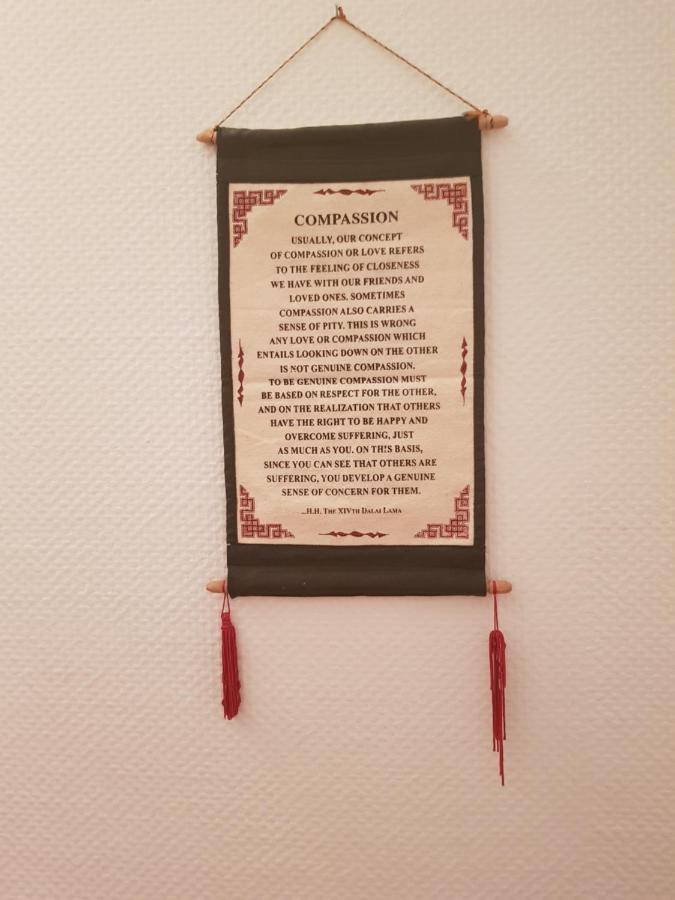 COMPASSION
USUALLY, OUR CONCEPT
OF COMPASSION OR LOVE REFERS
TO THE FEELING OF CLOSENESS
WE HAVE WITH OUR FRIENDS AND
LOVED ONES. SOMETIMES
COMPASSION ALSO CARRIES A
SENSE OF PITY. THIS IS WRONG
ANY LOVE OR COMPASSION WHICH
ENTAILS LOOKING DOWN ON THE OTHER
IS NOT GENUINE COMPASSION.
TO BE GENUINE COMPASSION MUST
BE BASED ON RESPECT FOR THE OTHER,
AND ON THE REALIZATION THAT OTHERS
HAVE THE RIGHT TO BE HAPPY AND
OVERCOME SUFFERING, JUST
AS MUCH AS YOU. ON THIS BASIS,
SINCE YOU CAN SEE THAT OTHERS ARE
SUFFERING, YOU DEVELOP A GENUINE
SENSE OF CONCERN FOR THEM.
...H.H. THE XIVTH DALAI LAMA